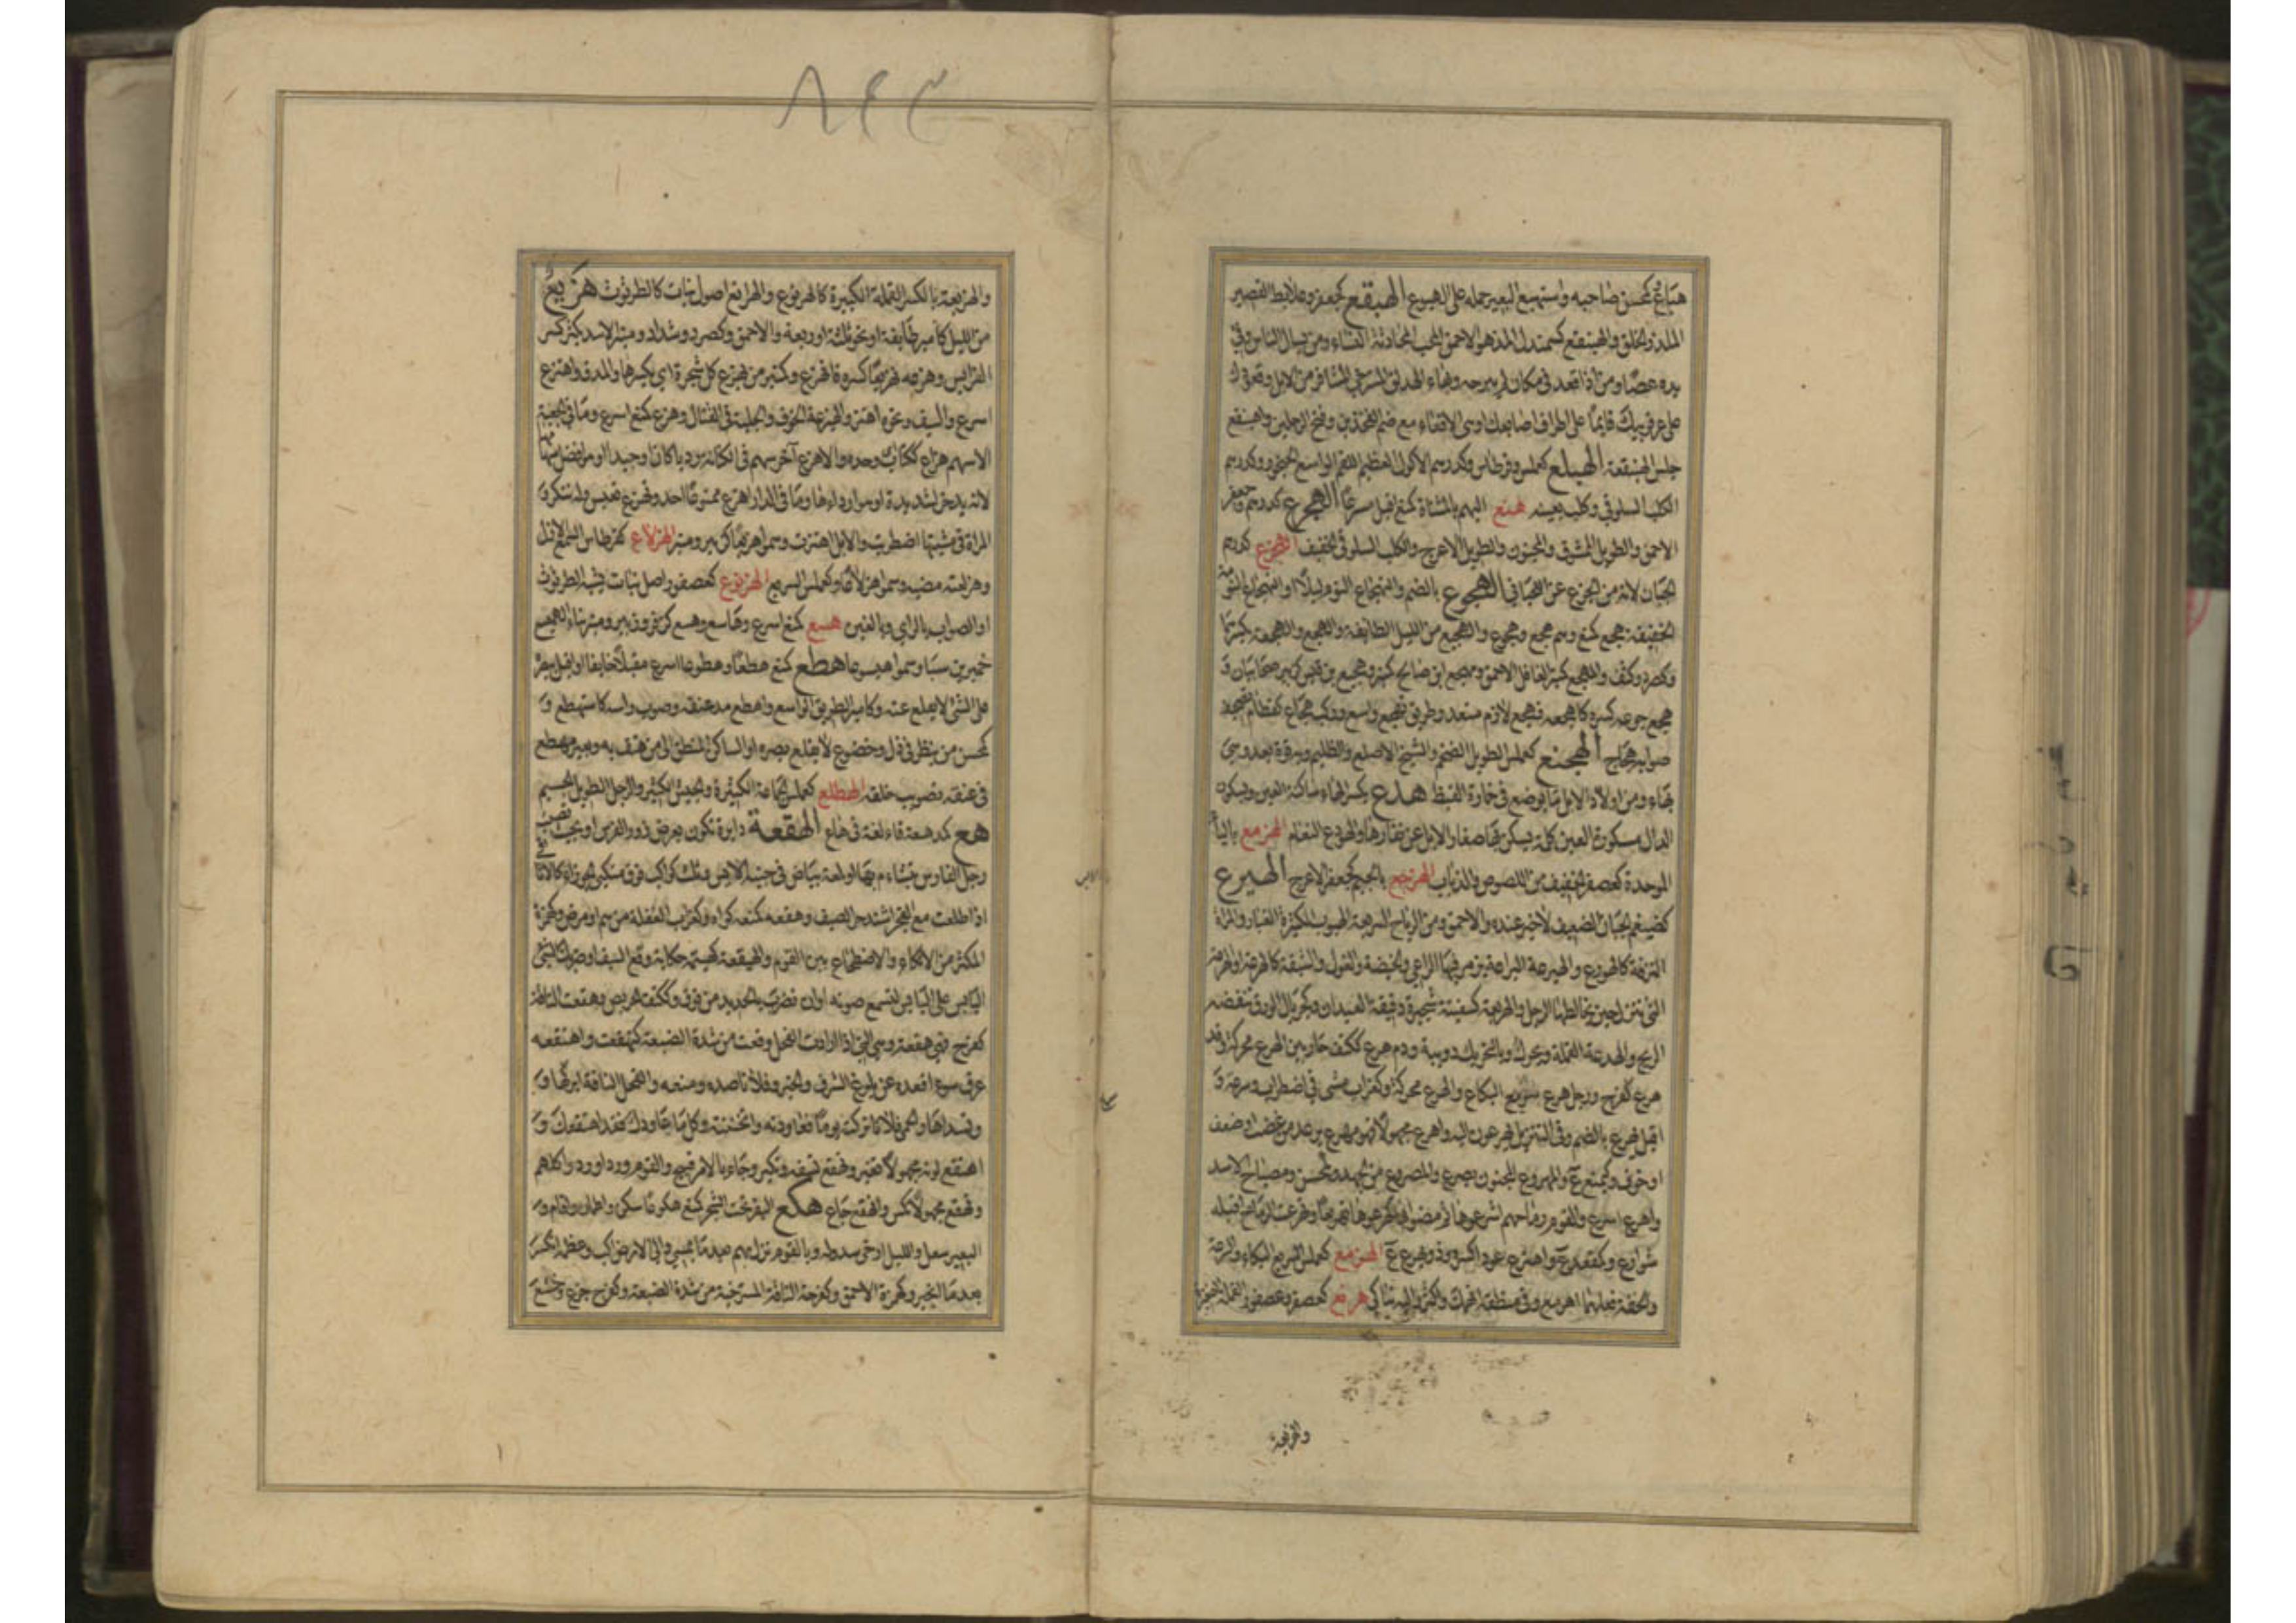 هباغ كمحسن صاحبه واستهبع البعير حمله على الهبوع الهبقع كجعفر وعلابط القصير
الملزز الخلق والهبنقع كسمندل المزهو الاحمق المحب لمحادثة النساء ومن يسأل الناس وفي
يده عصا ومن اذا قعد في مكان لم يبرحه وبهاء المسترخي المشافر من الابل وقعودك
على عرقوبيك قائما على اطراف اصابعك او هي الاقعاء مع ضم الفخذين وفتح الرجلين واهبنقع
جلس الهبنقعة الهبلع كعملس وقرطاس وكدرهم الاكول العظيم اللقم الواسع الحنجور وكدرهم
الكلب السلوقي وكلب بعينه هتع اليهم بالمثناة كمنع اقبل مسرعا الهجرع كدرهم وجعفر
الاحمق والطويل الممشوق والمجنون والطويل الاعرج والكلب السلوقي الخفيف الهجزع كدرهم
الجبان لانه من الجزع عن الهجناني الهجوع بالضم والتهجاع النوم ليلا او التهجاع النومة
الخفيفة هجع كمنع وهم هجع وهجوع والهجيع من الليل الطائفة والهجع والهجعة بكسرهما
وكصرد وكتف والمهجع كمنبر الغافل الاحمق ومهجع ابن صالح كمنبر وهجيع بن قيس كزبير صحابيان و
هجع جوعه كسره كاهجعه فهجع لازم متعد وطريق تهجع واسع
الهجنع كعملس الطويل الضخم والشيخ الاصلع والظليم وبه قوة بعد وهي
بهاء ومن اولاد الابل ما يوضع في حمارة القيظ هدع بكسر الهاء ساكنة العين وبسكون
الدال مكسورة العين كلمة يسكن بها صغار الابل عن نفارها والهودع النعام الهربع بالباء
الموحدة كعصفر الخفيف من اللصوص والذئاب الهرجع بالجيم كجعفر الاعرج الهيرع
كضيغم الجبان الضعيف لا خير عنده والاحمق ومن الرياح السريعة الهبوب الكثيرة الغبار والمرأة
النزقة كالهروع والهيرعة اليراعة يزمر فيها الراعي والخيضة والغول والشبقة كالهرعة او هي
التي تنزل حين يخالطها الرجل والهريعة كسفينة شجيرة دقيقة العيدان
الريح والهرعة القملة ويحرك وبالتحريك دويبة ودم هرع ككتف جار بين الهرع محركة وقد
هرع كفرح ورجل هرع سريع البكاء والهرع محركة وكغراب مشي في اضطراب وسرعة و
اقبل يهرع بالضم وفي التنزيل يهرعون اليه واهرع مجهولا فهو مهرع يرعد من غضب او ضعف
او خوف والمهروع المجنون يصرع والمصروع من الجهد وكمحسن ومصباح الاسد
واهرع اسرع والقوم رماحهم اشرعوها ثم مضوا بها كهرعوها تهريعا وتهرعت الرماح اقبلت
شوارع وكمقعد واهترع عودا كسره وذو يهرع الهرمع كعملس السريع البكاء والسرعة
والخفة فعلهما اهرمع وفي منطقه انهمك واكثر واليه تباكى هرنع كعصفر وعصفور القملة الصغيرة
والهرنعة
٨٤٣
والهرنعة بالكسر القملة الكبيرة كالهرنوع والهرانع اصول نبات كالطرثوث هزيع
من الليل كامير طائفة او نحو ثلثه او ربعه والاحمق وكصرد وشداد ومنبر الاسد يكثر كسر
الفرائس وهزعه تهزيعا كسره فانهزع وكمنبر من يهزع كل شجرة اي يكسرها والمدق واهتزع
اسرع والسيف ونحوه اهتز والهيزعة الخوف والجلبة في القتال وهزع كمنع اسرع وما في الجعبة
الا سهم هزاع ككتاب وحده والاهزع آخر سهم في الكنانة رديا كان او جيدا او هو افضل سهامها
لانه يدخر لشديدة او هو اردأها وما في الدار اهزع ممنوعا احد وتهزع تعبس وله تنكر و
المرأة في مشيتها اضطربت والابل اهتزت وسموا هزيعا كزبير ومنبر الهزلاع كقرطاس السمع الازل
وهزلعته مضيه وسموا هزلاعا وكعملس السريع الهزنوع كعصفور اصل نبات يشبه الطرثوث
او الصواب بالراي وبالغين هسع كمنع اسرع وهاسع وهسع كزفر وزبير ومنبر ابناء الهميسع
حمير بن سبا وسموا هيسوعا هطع كمنع هطعا وهطوعا اسرع مقبلا خائفا او اقبل ببصره
على الشئ لا يقلع عنه وكامير الطريق الواسع واهطع مد عنقه وصوب راسه كاستهطع و
كمحسن من ينظر في ذل وخضوع لا يقلع بصره او الساكت المنطلق الى من هتف به وبعير مهطع
في عنقه تصويب خلقة الهطلع كعملس الجماعة الكثيرة والجيش الكثير والرجل الطويل الجسيم
هع كمد هعة قاء لغة في هاع الهقعة دائرة تكون بعرض زور الفرس او بحيث تصيب
رجل الفارس يتشاءم بها او لمعة بياض في جنبه الايسر وثلث كواكب فوق منكبي الجوزاء كالاثافي
اذا طلعت مع الفجر اشتد حر الصيف وهقعه كمنعه كواه وكغراب الغفلة من هم او مرض وكهمزة
المكثر من الاتكاء والاضطجاع بين القوم والهيقعة كهينمة حكاية وقع السيف او ضربك الشئ
اليابس على اليابس لتسمع صوته او ان تضرب بالحديد من فوق وككتف الحريص وهقعت الناقة
كفرح فهي هقعة وهي التي اذا ارادت الفحل وقعت من شدة الضبعة كتهقعت واهتقعه
عرق سوء اقعده عن بلوغ الشرف والخير وفلانا صده ومنعه والفحل الناقة ابركها و
وتسداها والحمى فلانا تركته يوما فعاودته واثخنته وكل ما عاودك فقد اهتقعك و
اهتقع لونه مجهولا تغير وتهقع تسفه وتكبر وجاء بالامر قبيح والقوم وردا وردوا كلهم
وتهقع مجهولا نكس وانهقع جاع هكع البقر تحت الشجر كمنع هكوعا سكن واطمان واقام و
البعير سعل والليل ارخى سدوله وبالقوم نزل بهم بعد ما يمسي والى الارض اكب وعظمه انكسر
بعد ما انجبر وكهمزة الاحمق وكفرحة الناقة المسترخية من شدة الضبعة وكفرح جزع وخشع